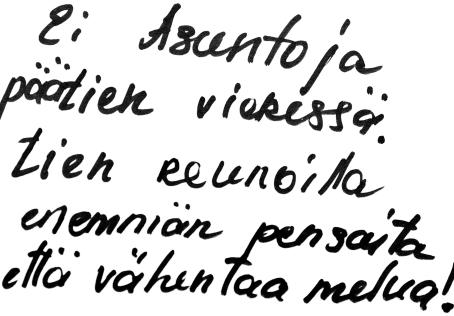 Ei Asuntoja
päätien vieressä.
tien reunoilla
enemmän pensaita
että vähentaa melua!